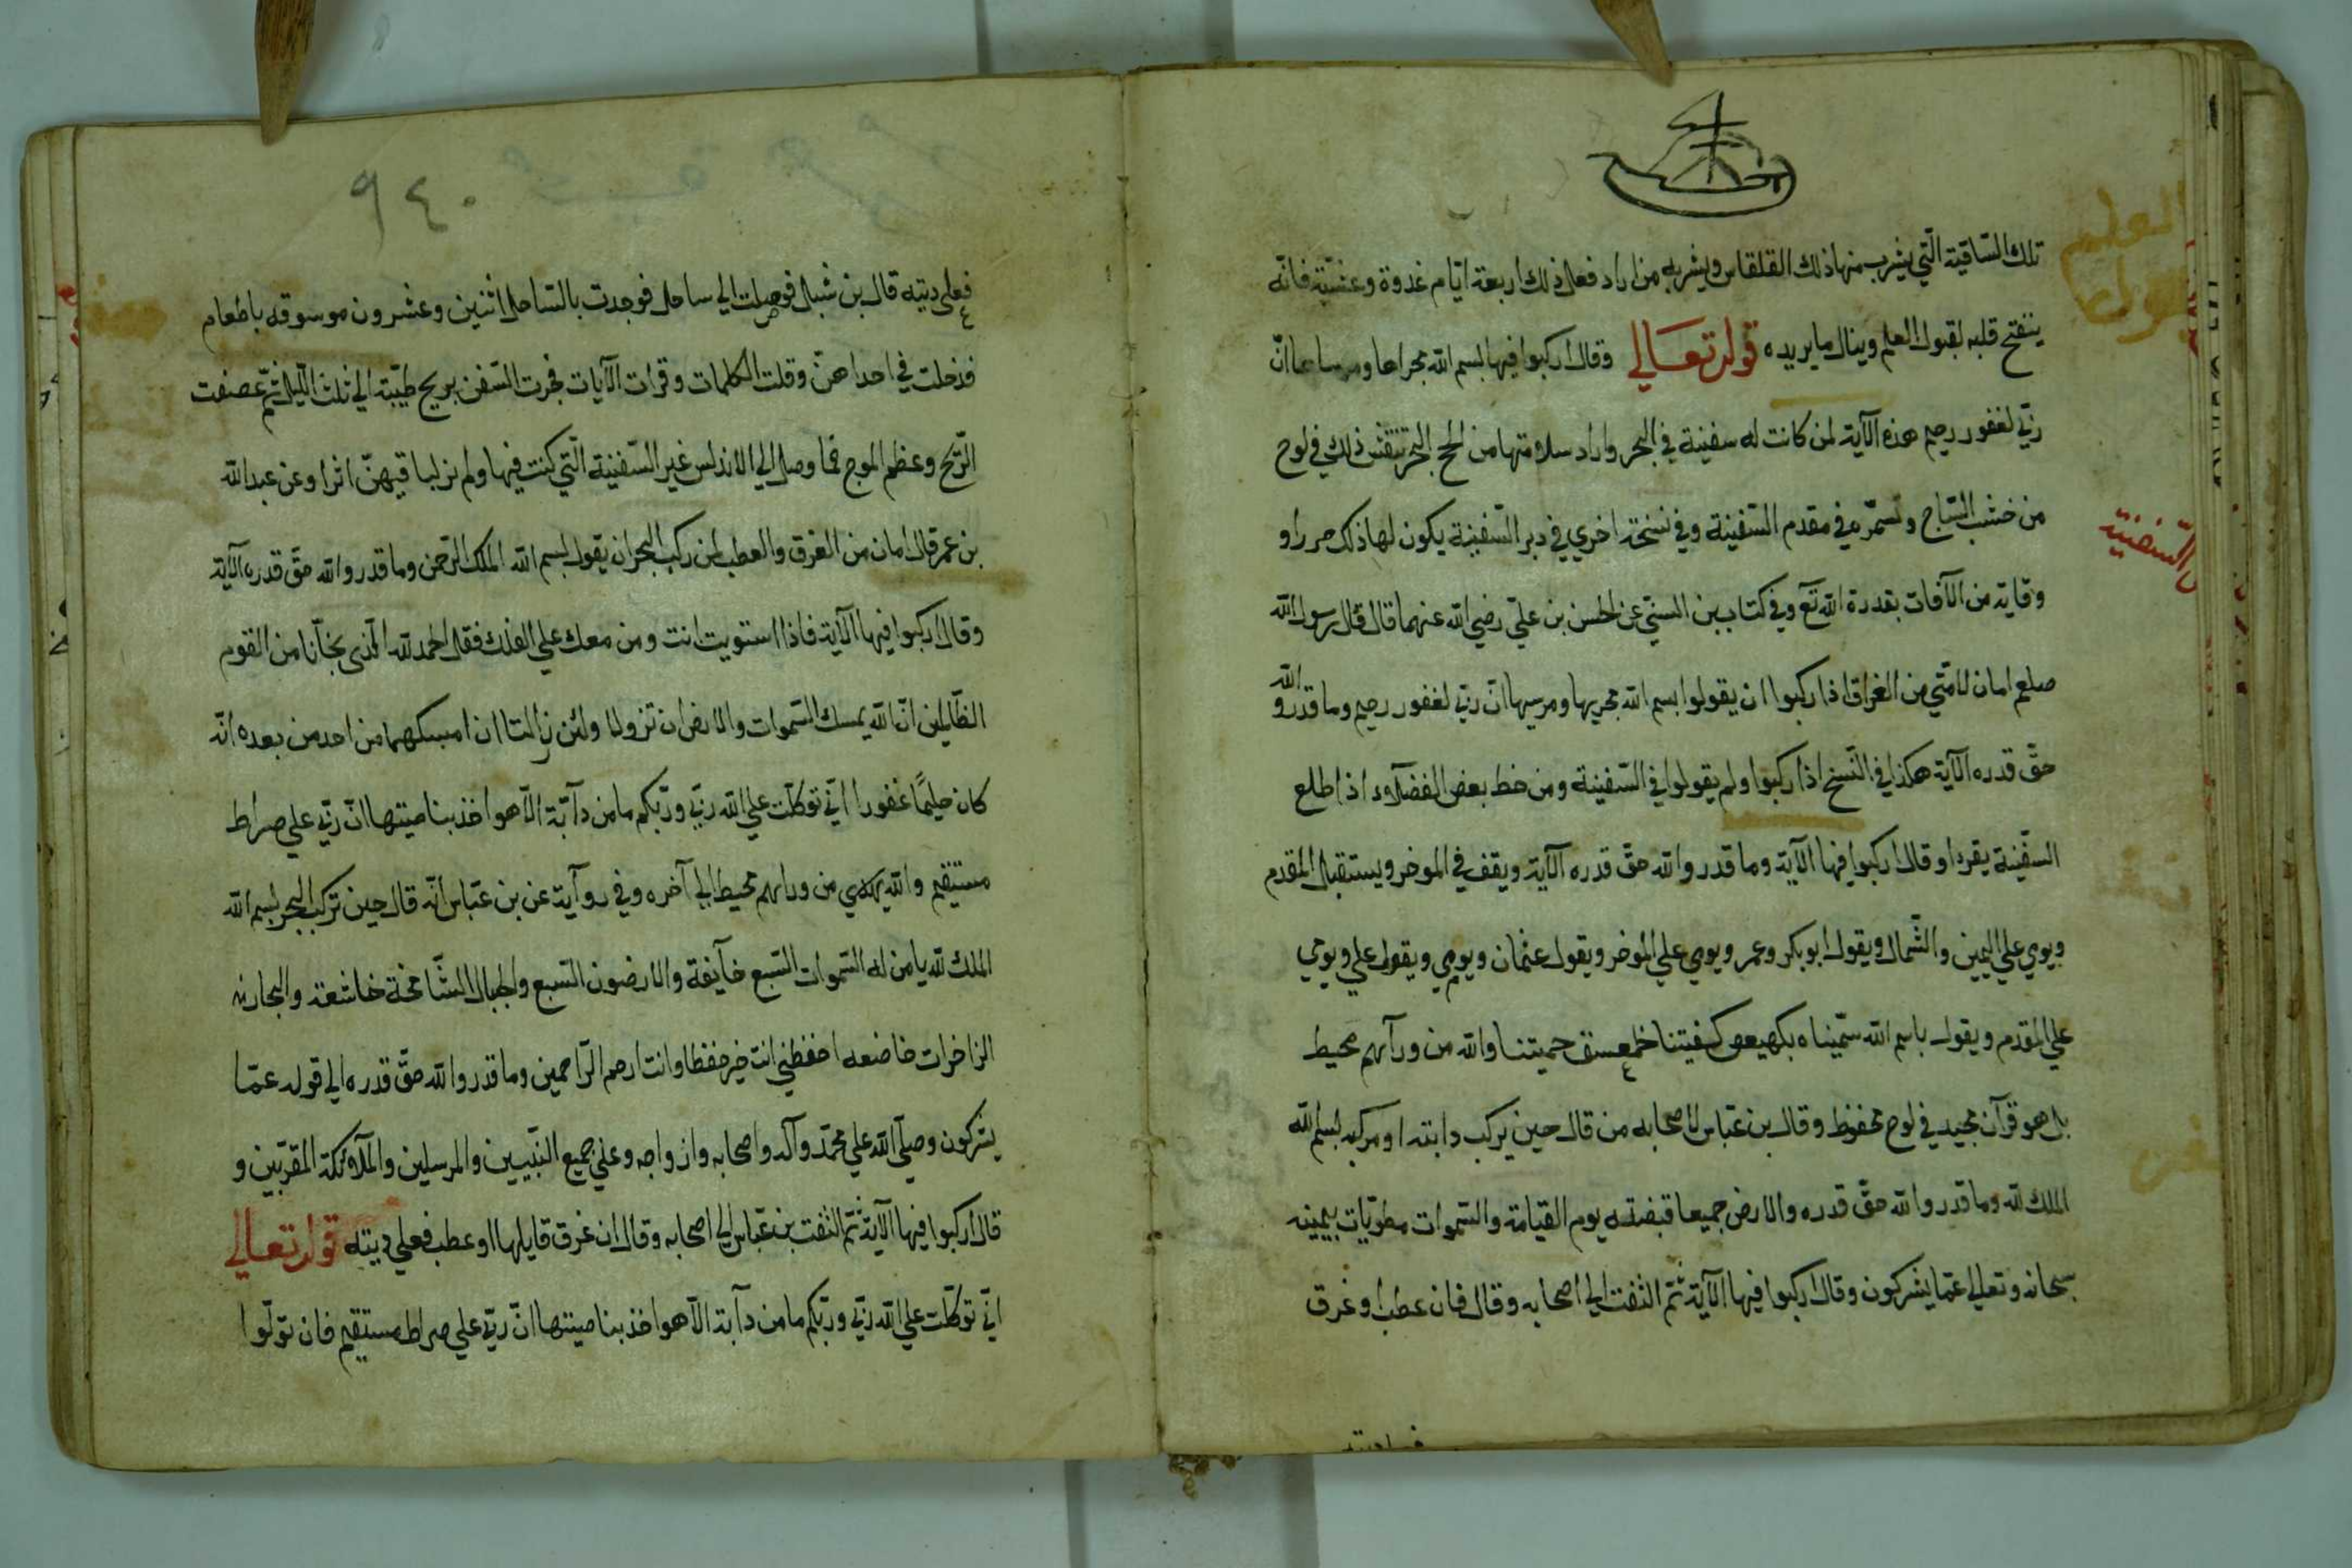 تلك السّاقية الّتي يشرب منها ذلك القلقاس ويشربه من اراد فعل ذلك اربعة ايّام غدوة وعشيّة فانّه
ينفتح قلبه لقبول العلم وينال ما يريده قوله تعالي وقال اركبوا فيها بسم الله مجراها ومرساها انّ
ربّي لغفور رحيم هذه الآية لمن كانت له سفينة في البحر واراد سلامتها من البحر تنقش ذلك في لوح
من خشب السّاج وتسمّره في مقدم السّفينة وفي نسخة اخري في دبر السّفينة يكون لها ذلك حرزا و
وقاية من الآفات بقدرة الله تع وفي كتاب بن السنيّ عن الحسن بن عليّ رضي الله عنهما قال قال رسول الله
صلعم امان لامّتي من الغراق اذا ركبوا ان يقولوا بسم الله مجريها ومرسيها انّ ربّي لغفور رحيم وما قدرو الله
حقّ قدره الآية هكذا في النّسخ اذا ركبوا ولم يقولوا في السّفينة ومن خط بعض الفضلآء اذا طلع
السّفينة يقراء وقال اركبوا فيها الآية وما قدرو الله حقّ قدره الآية ويقف في الموخر ويستقبل المقدم
ويومي علي اليمين والشّمال ويقول ابو بكر وعمر ويومي علي الموخر ويقول عثمان ويومي ويقول علي ويومي
علي المقدم ويقول باسم الله سمّيناه بكهيعص كفيتنا حمعسق حميتنا والله من ورآءهم محيط
بل هو قرآن مجيد في لوح محفوظ وقال بن عبّاس لاصحابه من قال حين يركب دابته او مركبه بسم الله
الملك لله وما قدرو الله حقّ قدره والارض جميعا قبضته يوم القيامة والسّموات مطويّات بيمينه
سبحانه وتعالي عمّا يشركون وقال اركبوا فيها الآية ثمّ التفت الي اصحابه وقال فان عطب او غرق
العلم
السّفينة
٩٤٠
فعلي ديته قال بن شبل فوصلت الي ساحل فوجدت بالسّاحل اثنين وعشرون موسوقه باطعام
فدخلت في احداهنّ وقلت الكلمات وقرات الآيات فجرت السّفن بريح طيّبة الي ثلث اللّيل ثمّ عصفت
الرّيح وعظم الموج فما وصل الي الاندلس غير السّفينة الّتي كنت فيها ولم نر لباقيهنّ اثرا وعن عبد الله
بن عمر قال امان من الغرق والعطب لمن ركب البحر ان يقول بسم الله الملك الرّحمن وما قدرو الله حقّ قدره الآية
وقال اركبوا فيها الآية فاذا استويت انت ومن معك علي الفلك فقل الحمد لله الّذي نجّانا من القوم
الظّالمين انّ الله يمسك السّموات والارض ان تزولا ولئن زالتا ان امسكهما من احد من بعده انّه
كان حليمًا غفورا انّي توكّلت علي الله ربّي وربّكم ما من دآبّة الّا هو اخذ بناصيتها انّ ربّي علي صراط
مستقيم والله من ورايهم محيط الي آخره وفي روآية عن بن عبّاس انّه قال حين تركب البحر بسم الله
الملك لله يا من له السّموات السّبع خآيفة والارضون السّبع والجبال الشّامخة خاشعة والبحار
الزاخرات خاضعه احفظني انت خير حفظا وانت ارحم الرّاحمين وما قدرو الله حقّ قدره الي قوله عمّا
يشركون وصلّي الله علي محمّد وآله واصحابه وازواجه وعلي جميع النّبيين والمرسلين والملآئكة المقرّبين و
قال اركبوا فيها الآية ثمّ التفت بن عبّاس الي اصحابه وقال ان غرق قايلها او عطب فعلي ديته قوله تعالي
انّي توكّلت علي الله ربّي وربّكم ما من دآبة الّا هو اخذ بناصيتها انّ ربّي علي صراط مستقيم فان تولّوا